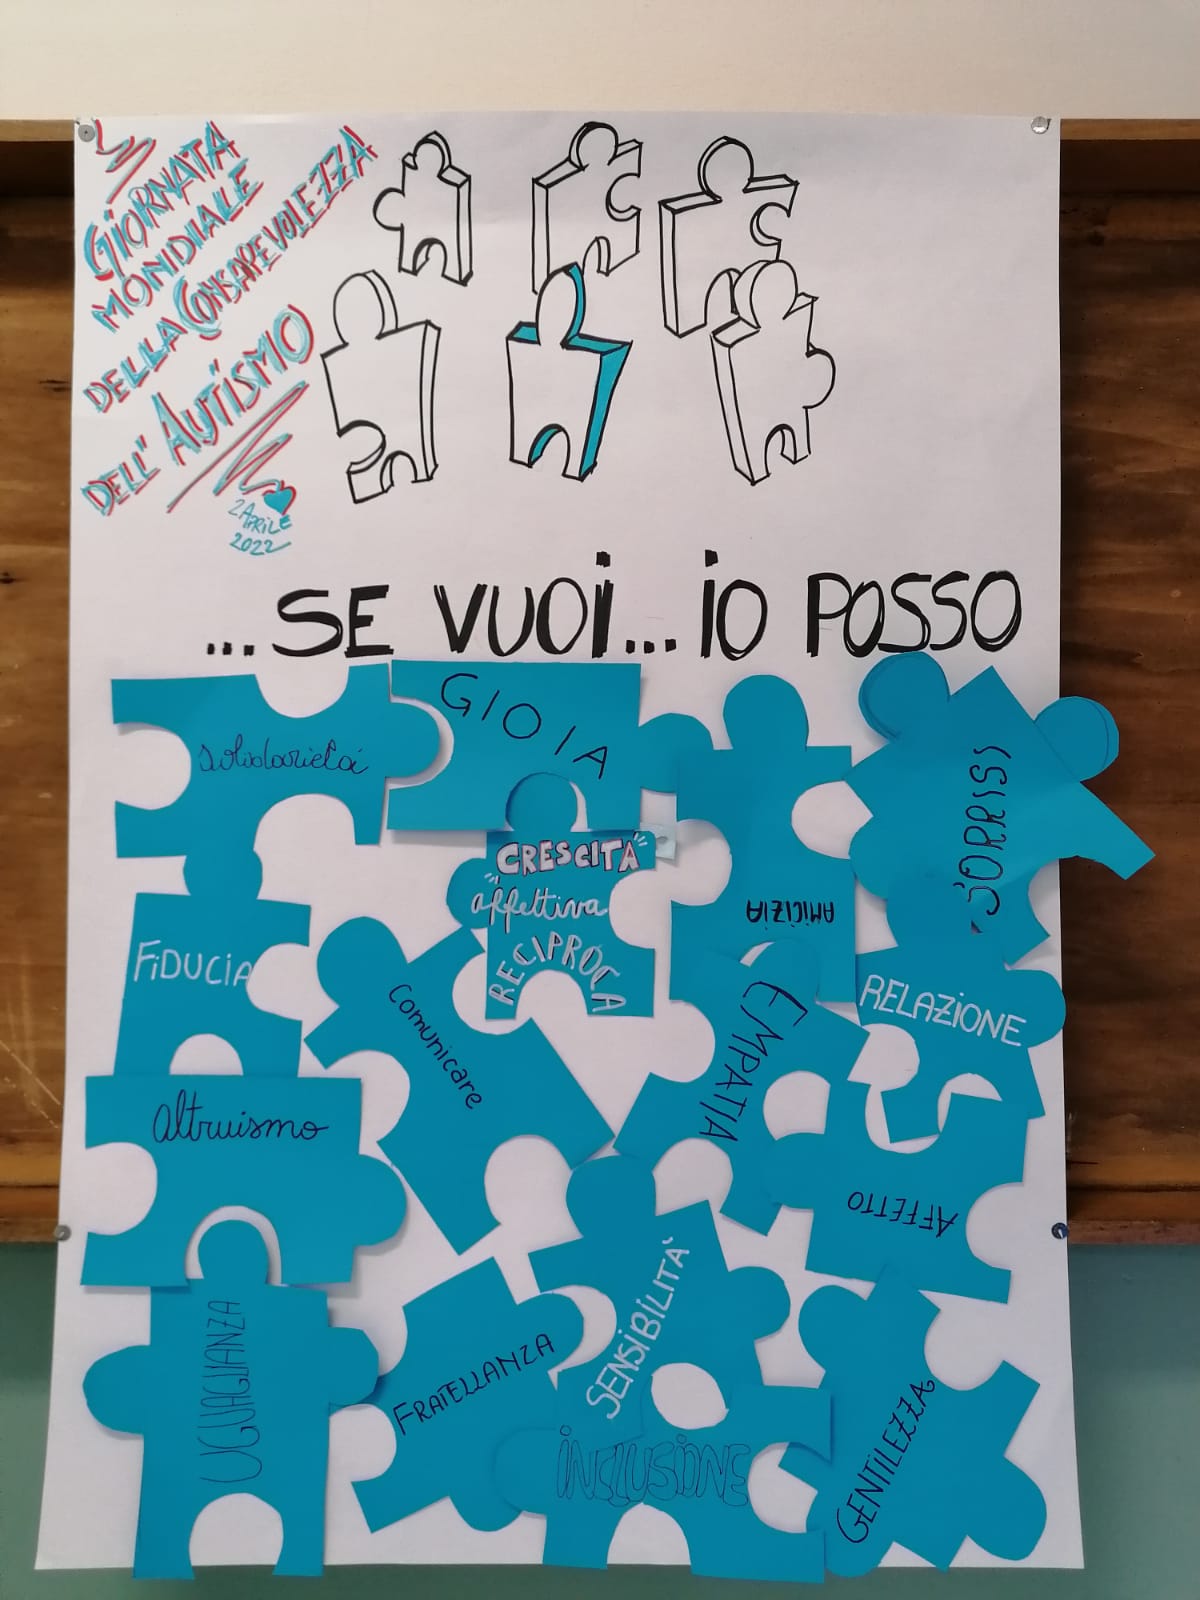 GIORNATA
MONDIALE
DELLA CONSAPEVOLEZZA
DELL' AUTISMO
2 APRILE
2022
...SE VUOI... IO POSSO
GIOIA
solidarietà
SORRISI
"CRESCITA"
affettiva
RECIPROCA
AMICIZIA
FIDUCIA
comunicare
EMPATIA
RELAZIONE
altruismo
AFFETTO
SENSIBILITA'
UGUAGLIANZA
FRATELLANZA
GENTILEZZA
INCLUSIONE